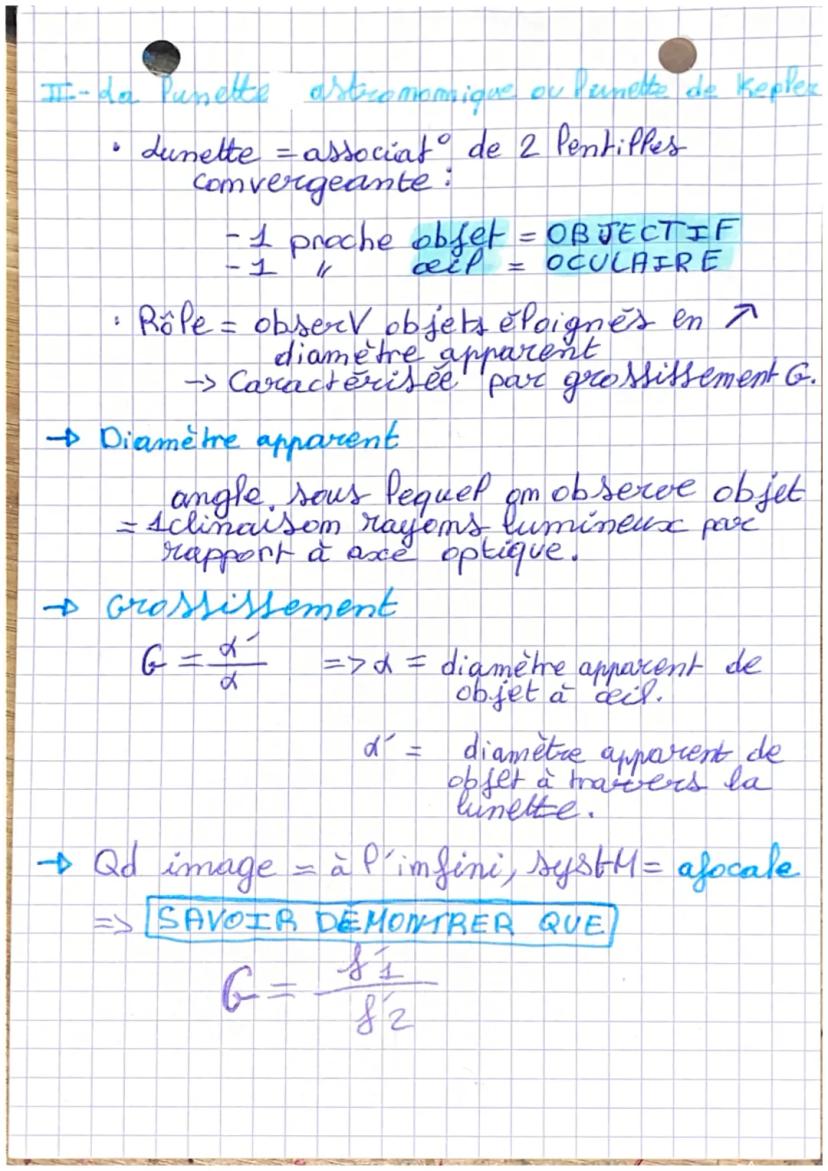 II-La lunette astronomique ou lunette de Kepler
• Lunette = associat° de 2 lentilles
convergeante :
- 1 proche objet = OBJECTIF
- 1 " œil = OCULAIRE
• Rôle = observ objets éloignés en ↗
diamètre apparent
-> Caractérisée par grossissement G.
→ Diamètre apparent
angle sous lequel on observe objet
= 1clinaison rayons lumineux par
rapport à axe optique.
→ Grossissement
G = α' / α => α = diamètre apparent de
objet à œil.
α' = diamètre apparent de
objet à travers la
lunette.
→ Qd image = à l'infini, systM = afocale
=> SAVOIR DÉMONTRER QUE
G = f'1 / f'2